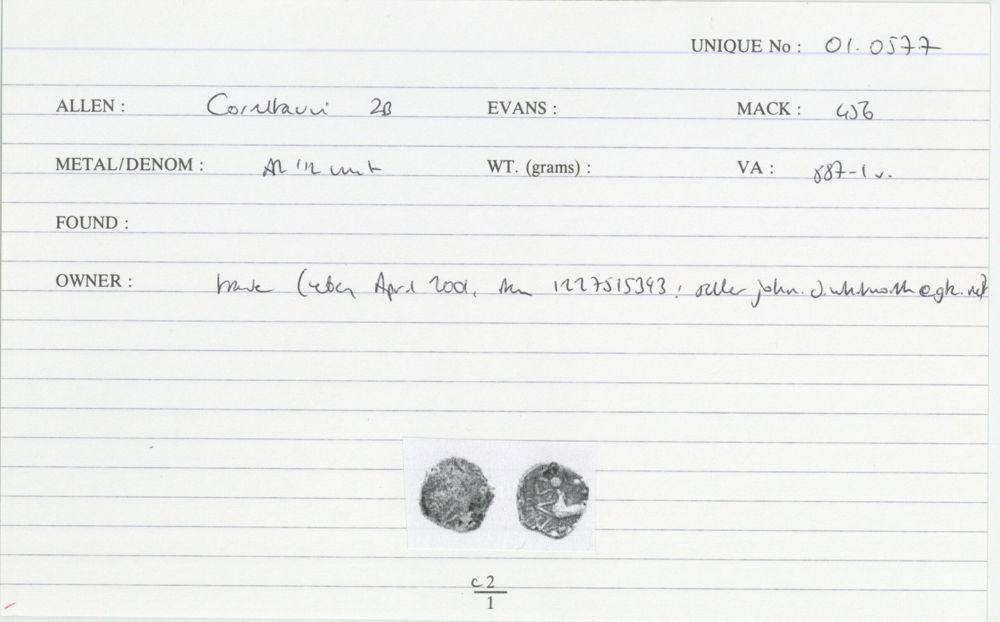 UNIQUE No : 01.0577
ALLEN : Corieltauvi 2B EVANS : MACK : 456
METAL/DENOM : AR 1/2 unit WT. (grams) : VA : 887-1 v.
FOUND :
OWNER : trade (eBay, April 2001, item 1227515393; seller
c2
1